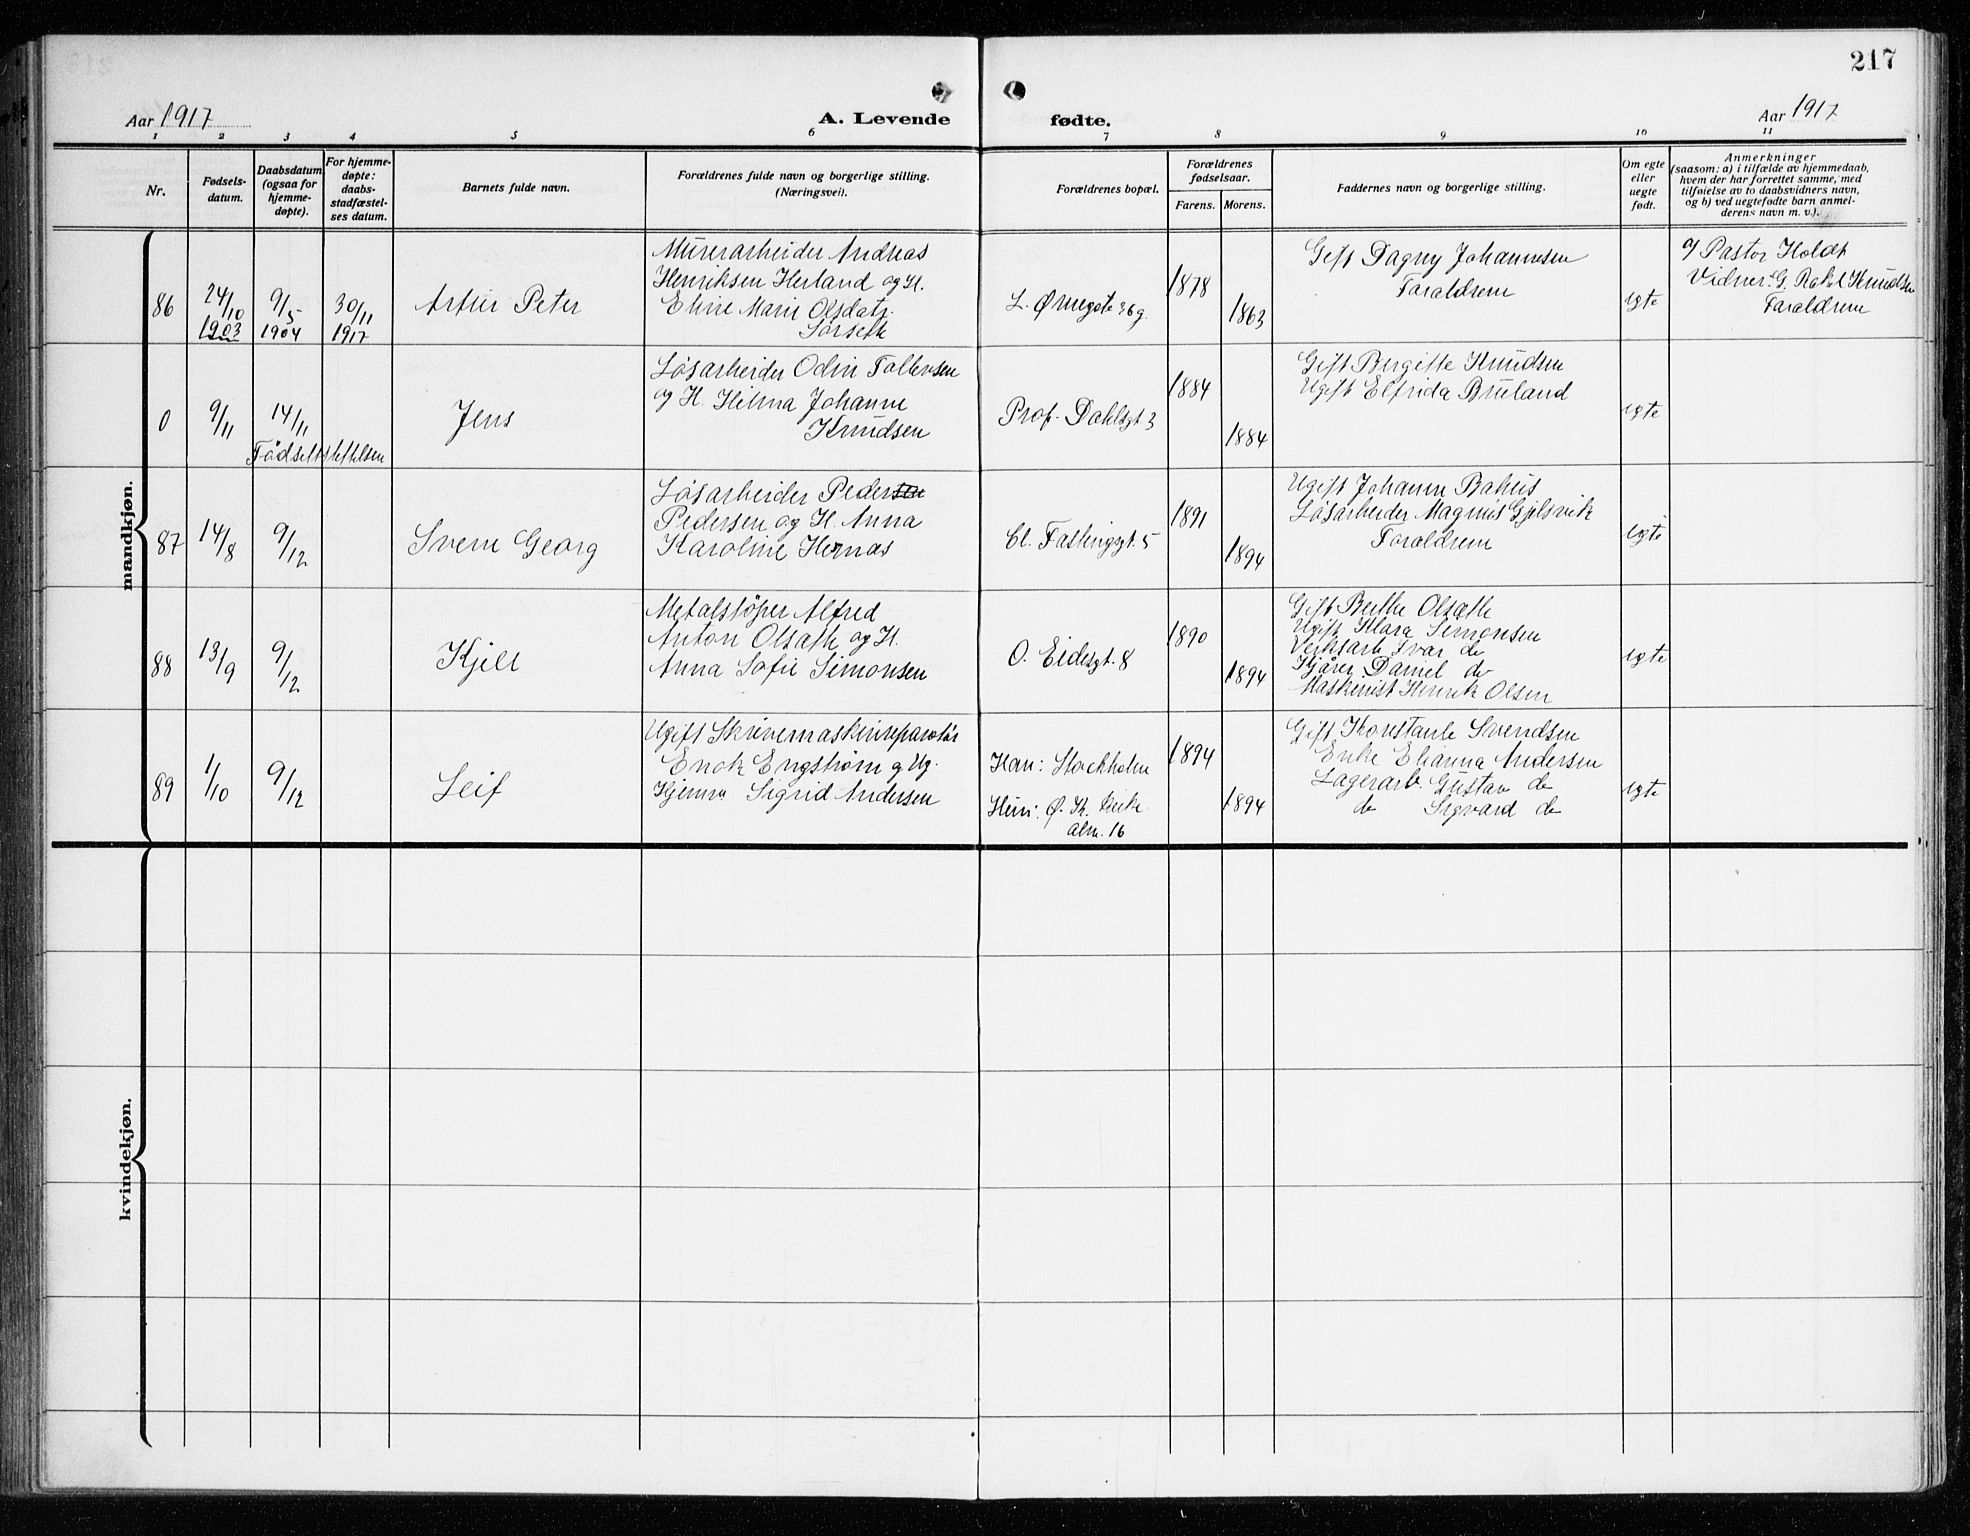 217
Aar 1917
A. Levende fødte.
Aar 1917
1 2 3 4 5 6 7 8 9 10 11
Nr.
Fødsels-
datum.
Daabsdatum
(ogsaa for
hjemme-
døpte).
For hjemme-
døpte:
daabs-
stadfæstel-
ses datum.
Barnets fulde navn.
Forældrenes fulde navn og borgerlige stilling.
(Næringsvei).
Forældrenes bopæl.
Forældrenes
fødselsaar.
Farens. Morens.
Faddernes navn og borgerlige stilling.
Om egte
eller
uegte
født.
Anmerkninger
(saasom: a) i tilfælde av hjemmedaab,
hvem der har forrettet samme, med
tilføielse av to daabsvidners navn,
og b) ved uegtefødte barn anmel-
derens navn m. v.).
mandkjøn.
86
24/10
1903
9/5
1904
30/11
1917
Artur Peter
Murerarbeider Andreas
Henriksen Herland og H.
Eline Marie Olsdatr.
Sørseth
L. Øregate 36 g.
1878
1863
Gift Dagny Johannesen
Forældrene
egte
af Pastor Holdt
Vidner: G. Rakel Knudsen
Forældrene
0
9/11
14/11
Fødselsstiftelsen
Jens
Løsarbeider Odin Tollevsen
og H. Helma Johanne
Knudsen
Prof. Dahlsgt 3
1884
1884
Gift Birgitte Knudsen
Ugift Elfrida Bruland
egte
87
14/8
9/12
Svern Georg
Løsarbeider Pedersen
Pedersen og H. Anna
Karoline Hernæs
Cl. Fastingsgt. 5
1891
1894
Ugift Johanne Bahus
Løsarbeider Magnus Gjelsvik
Forældrene
egte
88
13/9
9/12
Kjell
Metalstøper Alfred
Anton Olsæth og H.
Anna Sofie Simonsen
O. Eidesgt. 8
1890
1894
Gift Berthe Olsæth
Ugift Klara Simonsen
Verksarb Ivar do
Kjører Daniel do
Maskinist Henrik Olsen
egte
89
1/10
9/12
Leif
Ugift Skrivemaskinreparatør
Enok Engstrøm og Ug.
Hjemv Sigrid Andersen
Han: Stockholm
Hun: Ø. K. Kirke
alm. 16
1894
1894
Gift Konstanse Svendsen
Enke Elianna Andersen
Lagerarb. Gustav do
do Sigvard do
egte
kvindekjøn.